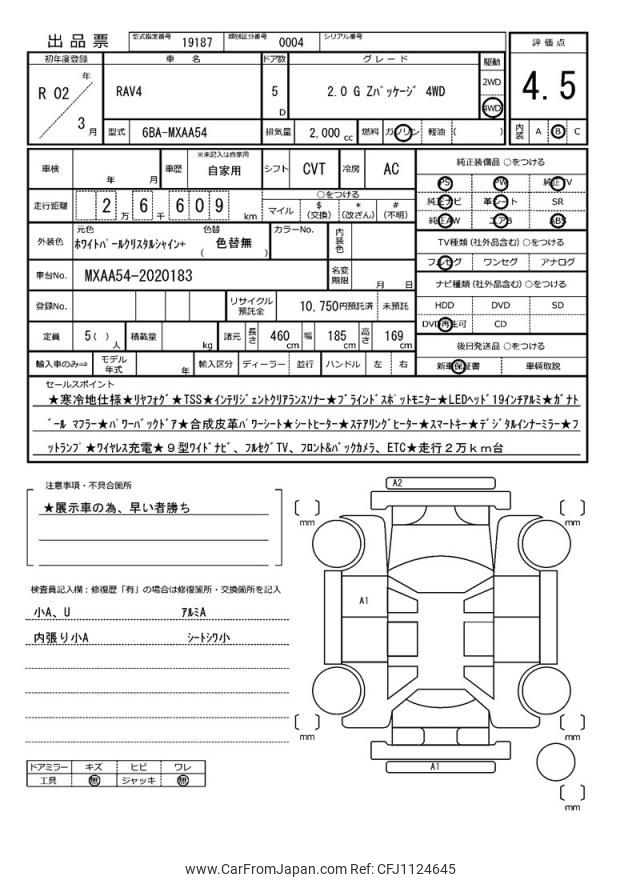 出品票
型式指定番号 19187 類別区分番号 0004 シリアル番号
初年度登録 車名 ドア数 グレード 駆動 評価点
R 02 年 3 月
RAV4 5 D 2.0 G Zﾊﾟｯｹｰｼﾞ 4WD
2WD
4WD
4.5
型式 6BA-MXAA54 排気量 2,000 cc 燃料 ガソリン 軽油 ( )
内装 A B C
車検 年 月 車歴 ※未記入は自家用 自家用 シフト CVT 冷房 AC
走行距離 2 万 6 千 6 0 9 km
○をつける
マイル $(交換) *(改ざん) #(不明)
外装色 元色 ﾎﾜｲﾄﾊﾟｰﾙｸﾘｽﾀﾙｼｬｲﾝ+ 色替 ( 色替無 ) カラーNo. 内装色
車台No. MXAA54-2020183 名変期限 月 日
登録No. リサイクル預託金 10,750円預託済 未預託
定員 5( )人 積載量 kg 諸元 長さ 460cm 幅 185cm 高さ 169cm
輸入車のみ⇒ モデル年式 年 輸入区分 ディーラー 並行 ハンドル 左 右
純正装備品 ○をつける
PS PW 純正TV
純正ナビ 革シート SR
純正AW エアB ABS
TV種類(社外品含む) ○をつける
フルセグ ワンセグ アナログ
ナビ種類(社外品含む) ○をつける
HDD DVD SD
DVD再生可 CD
後日発送品 ○をつける
新車保証書 車輌取説
セールスポイント
★寒冷地仕様★ﾘﾔﾌｫｸﾞ★TSS★ｲﾝﾃﾘｼﾞｪﾝﾄｸﾘｱﾗﾝｽｿﾅｰ★ﾌﾞﾗｲﾝﾄﾞｽﾎﾟｯﾄﾓﾆﾀｰ★LEDﾍｯﾄﾞ19インチアルミ★ｶﾞﾅﾄ
ﾞｰﾙ ﾏﾌﾗｰ★ﾊﾟﾜｰﾊﾞｯｸﾄﾞｱ★合成皮革ﾊﾟﾜｰｼｰﾄ★ｼｰﾄﾋｰﾀｰ★ｽﾃｱﾘﾝｸﾞﾋｰﾀｰ★ｽﾏｰﾄｷｰ★ﾃﾞｼﾞﾀﾙインナーﾐﾗｰ★ﾌ
ｯﾄﾗﾝﾌﾟ★ﾜｲﾔﾚｽ充電★９型ﾜｲﾄﾞﾅﾋﾞ、ﾌﾙｾｸﾞTV、ﾌﾛﾝﾄ&ﾊﾞｯｸｶﾒﾗ、ETC★走行２万ｋｍ台
注意事項・不具合箇所
★展示車の為、早い者勝ち
検査員記入欄：修復歴「有」の場合は修復箇所・交換箇所を記入
小A、U ｱﾙﾐA
内張り小A ｼｰﾄｼﾜ小
ドアミラー キズ ヒビ ワレ
工具 無 ジャッキ 無
A2
mm mm
A1
mm mm
A1
mm
www.CarFromJapan.com Ref: CFJ1124645